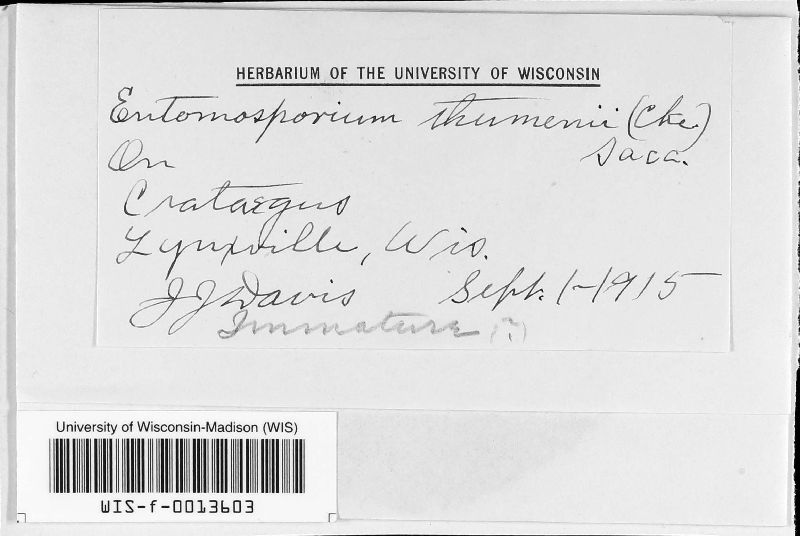 HERBARIUM OF THE UNIVERSITY OF WISCONSIN
Entomosporium thumenii (Cke.)
Sacc.
On
Crataegus
Lynxville, Wis.
JJ Davis Sept. 1-1915
Immature (?)
University of Wisconsin-Madison (WIS)
WIS-f-0013603